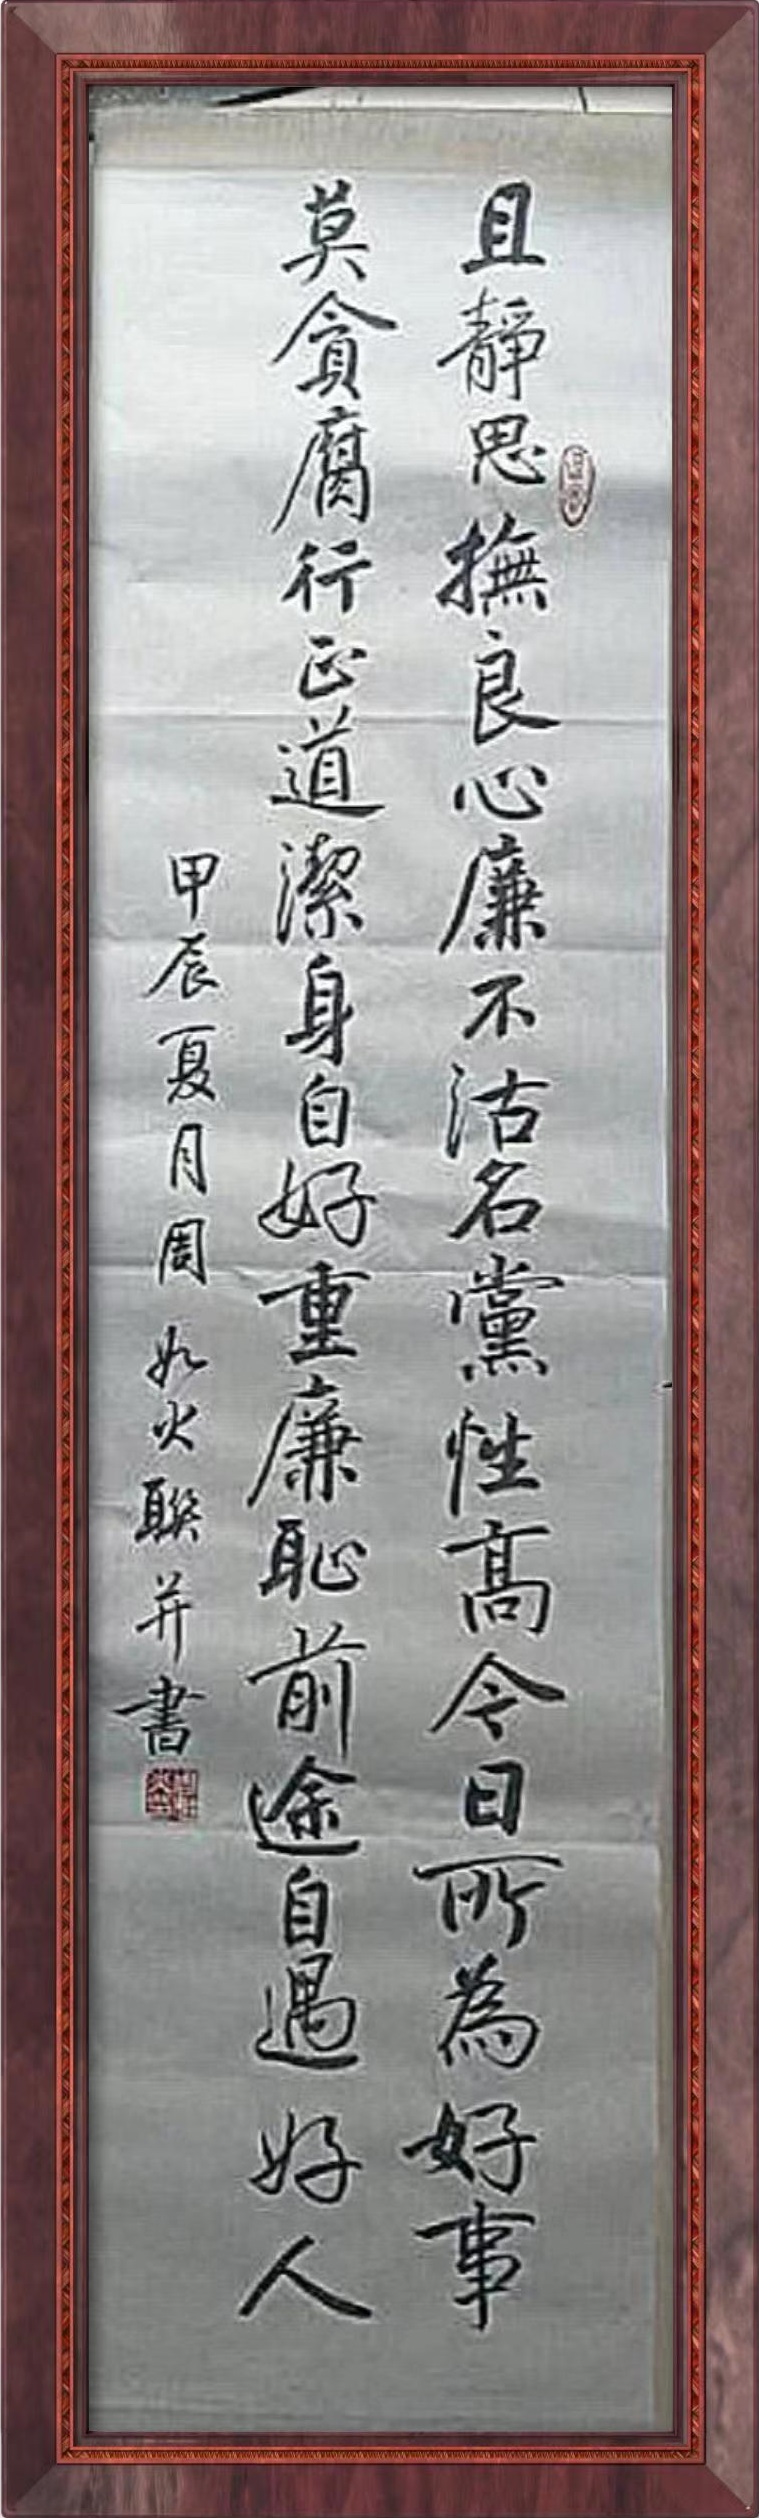 且靜思撫良心廉不沽名黨性高令日所為好事
莫貪腐行正道潔身自好重廉恥前途自遇好人
甲辰夏月周如火聯并書